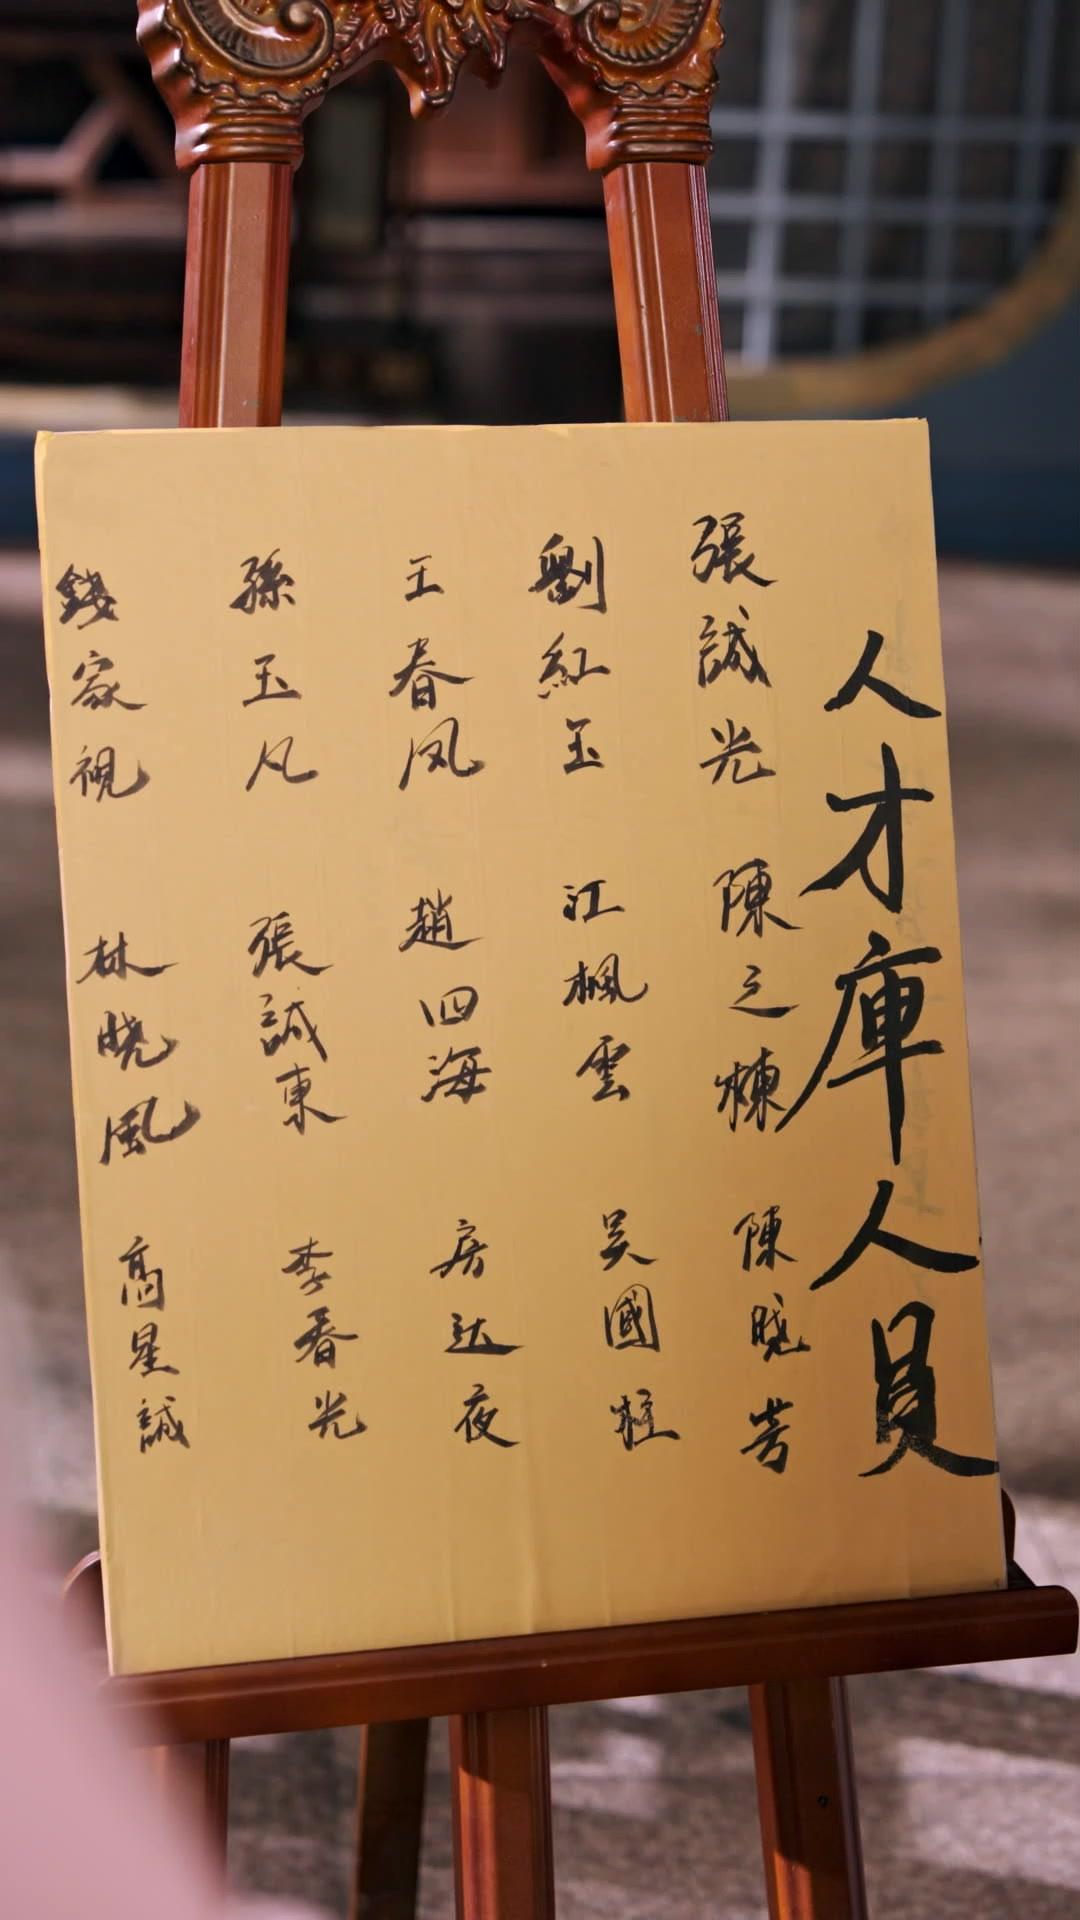 人才庫人員
張誠光
陳之棟
陳曉芳
劉紅玉
江楓雲
吴國柱
王春凤
趙四海
房达夜
孫玉凡
張誠東
李春光
錢家視
林曉風
高星誠